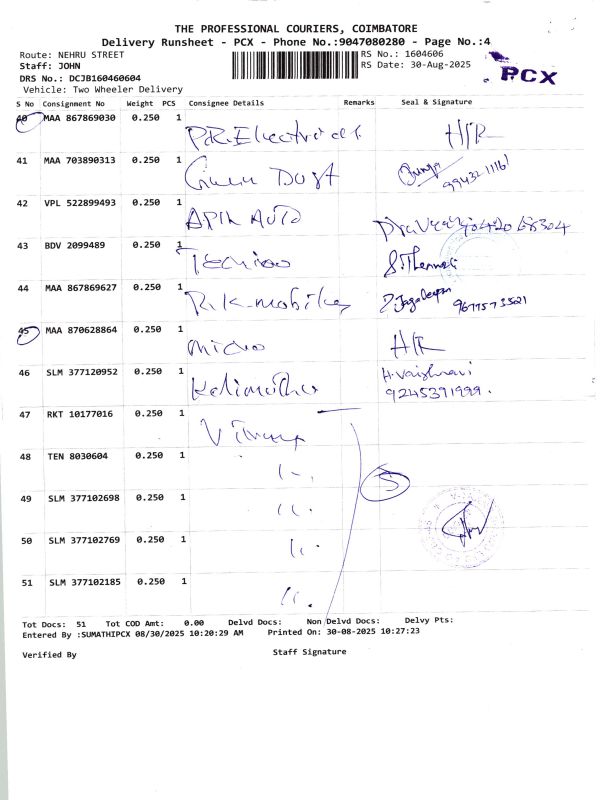 THE PROFESSIONAL COURIERS, COIMBATORE
Delivery Runsheet - PCX - Phone No.:9047080280 - Page No.:4
Route: NEHRU STREET
RS No.: 1604606
Staff: JOHN
RS Date: 30-Aug-2025
PCX
DRS No.: DCJB160460604
Vehicle: Two Wheeler Delivery
S No Consignment No Weight PCS Consignee Details Remarks Seal & Signature
40 MAA 867869030 0.250 1 P.R. Electricals H/R
41 MAA 703890313 0.250 1 Dust
42 VPL 522899493 0.250 1 AUTO
43 BDV 2099489 0.250 1
44 MAA 867869627 0.250 1 R.K. mobiles 9677573521
45 MAA 870628864 0.250 1 micro H/R
46 SLM 377120952 0.250 1 Kalimuthu H. Vaishnavi
9245391999.
47 RKT 10177016 0.250 1
48 TEN 8030604 0.250 1 "
5
49 SLM 377102698 0.250 1 "
50 SLM 377102769 0.250 1 "
51 SLM 377102185 0.250 1 "
Tot Docs: 51 Tot COD Amt: 0.00 Delvd Docs: Non Delvd Docs: Delvy Pts:
Entered By :SUMATHIPCX 08/30/2025 10:20:29 AM Printed On: 30-08-2025 10:27:23
Verified By Staff Signature